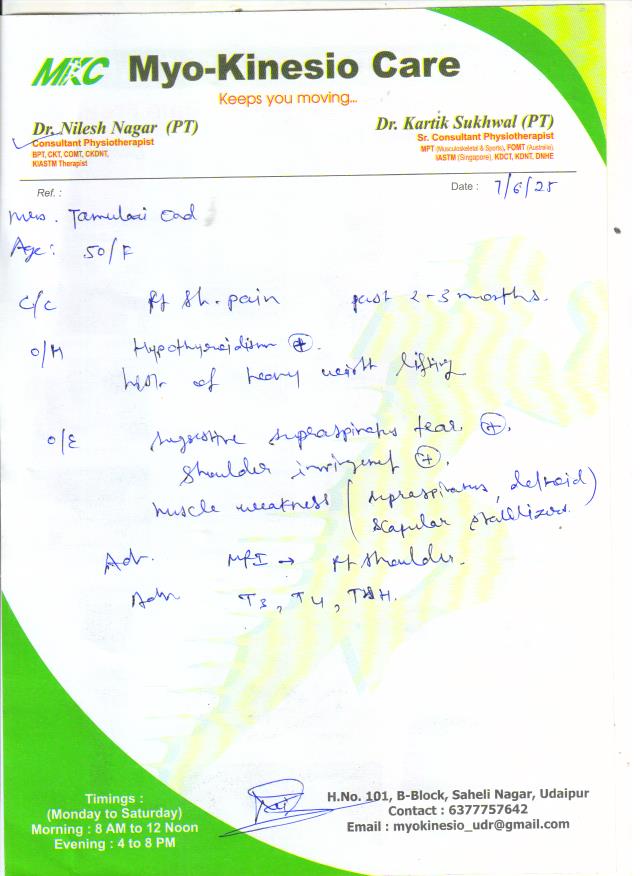 MKC Myo-Kinesio Care
Keeps you moving...
Dr. Nilesh Nagar (PT)
Consultant Physiotherapist
BPT, CKT, COMT, CKDNT,
KIASTM Therapist
Dr. Kartik Sukhwal (PT)
Sr. Consultant Physiotherapist
MPT (Musculoskeletal & Sports), FOMT (Australia)
IASTM (Singapore), KDCT, KDNT, DNHE
Ref. :
Date : 7/6/25
Mrs.
Age: 50/F
C/C Rt sh. pain past 2-3 months.
O/H Hypothyroidism +.
of heavy lifting
O/E supraspinatus tear +.
Shoulder +.
Muscle weakness (supraspinatus, deltoid)
scapular
Adv. MRI → Rt shoulder.
Adv T3, T4, TSH.
Timings :
(Monday to Saturday)
Morning : 8 AM to 12 Noon
Evening : 4 to 8 PM
H.No. 101, B-Block, Saheli Nagar, Udaipur
Contact : 6377757642
Email : myokinesio_udr@gmail.com